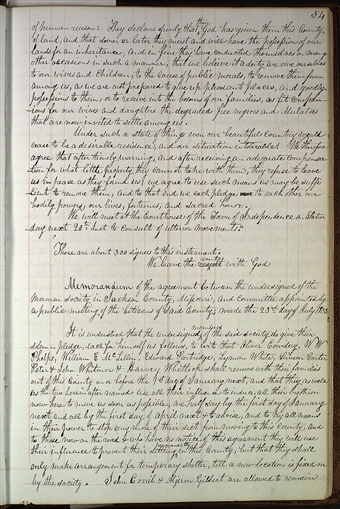 54
of human reason. They declare openly that their God has given them this County
of land, and that sooner or later they must and will have the possession of our
lands for an inheritance. And in fine they have conducted themselves on many
other occasions in such a manner, that we believe it a duty we owe ourselves
to our wives and children, to the cause of public morals, to remove them from
among us, as we are not prepared to give up pleasant places, and goodly
possessions to them, or to receive into the bosom of our families, as fit compan-
ions for our wives and daughters the degraded free negroes and Mulattos
that are now invited to settle among us.
Under such a state of things even our beautiful country would
cease to be a desirable residence, and our situation intolerable. We therefore
agree that after timely warning, and after receiving an adequate compensa-
tion for what little property they cannot take with them, they refuse to leave
us in peace as they found us, we agree to use such means as may be suffi-
cient to remove them, and to that end we each pledge to each other our
bodily powers, our lives, fortunes, and sacred honor.
We will meet at the Courthouse of the Town of Independence on Satur-
day next 20th Inst to consult of ulterior movements."
There are about 300 signers to this instrument.
We leave the event with God
Memorandum of the agreement between the undersigned of the
Mormon society in Jackson County, Missouri, and Committee appointed by
a public meeting of the Citizens of said County, made the 23rd day of July 1833.
It is understood that the undersigned members of the said society do give their
solemn pledge, each for himself as follows, to wit: That Oliver Cowdery, W W
Phelps, William E McLellin, Edward Partridge, Lyman Wight, Simeon Carter,
Peter & John Whitmer & Harvey Whitlock shall remove with their families
out of this County on or before the 1st day of January next, and that they as well
as the two herein after named use all their influence to induce all their brethren
now here to move as soon as possible, one half, say by the first day of January
next, and all by the first day of april next & to advise, and to try all means
in their power to stop any more of their sect from moving to this County, and
to those now on the road & who have no notice of this agreement they will use
their influence to prevent their settling permanently in this County, but that they shall
only make arrangement for temporary shelter, till a new location is fixed on
by the society. John Corrill & Algernon Gilbert are allowed to remain